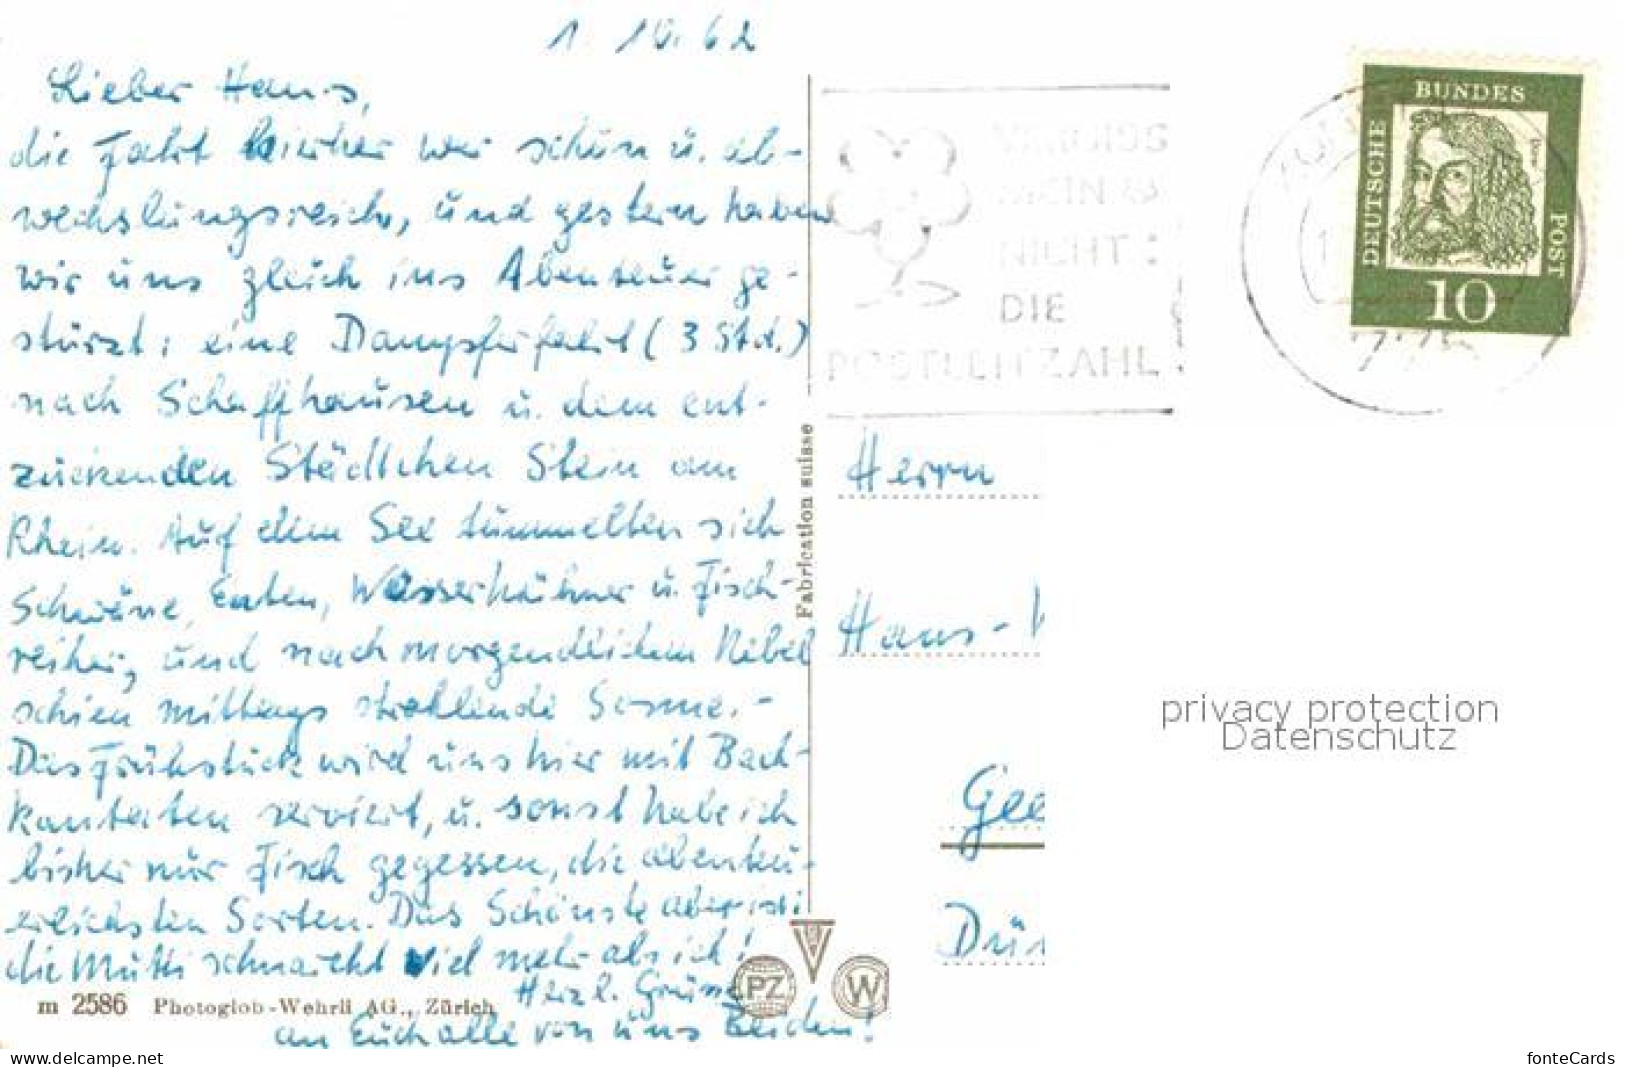 1. 10. 62
Lieber Hans,
die Fahrt hierher war schön u. ab-
wechslungsreich, und gestern haben
wir uns gleich ins Abenteuer ge-
stürzt: eine Dampferfahrt (3 Std.)
nach Schaffhausen u. dem ent-
zückenden Städtchen Stein am
Rhein. Auf dem See tummelten sich
Schwäne, Enten, Wasserhühner u. Fisch-
reiher, und nach morgendlichem Nebel
schien mittags strahlende Sonne. -
Das Frühstück wird uns hier mit Bach-
kantaten serviert, u. sonst habe ich
bisher nur Fisch gegessen, die abenteu-
erlichsten Sorten. Das Schönste aber ist:
die Mutti schnarcht viel mehr als ich!
Herzl. Grüsse
an Euch alle von uns Beiden!
m 2586 Photoglob-Wehrli AG., Zürich
Fabrication suisse
PZ
W
NICHT:
DIE
POSTLEITZAHL
DEUTSCHE
BUNDES
POST
10
Herrn
Hans-
Gee
Dür
privacy protection
Datenschutz
www.delcampe.net
fonteCards